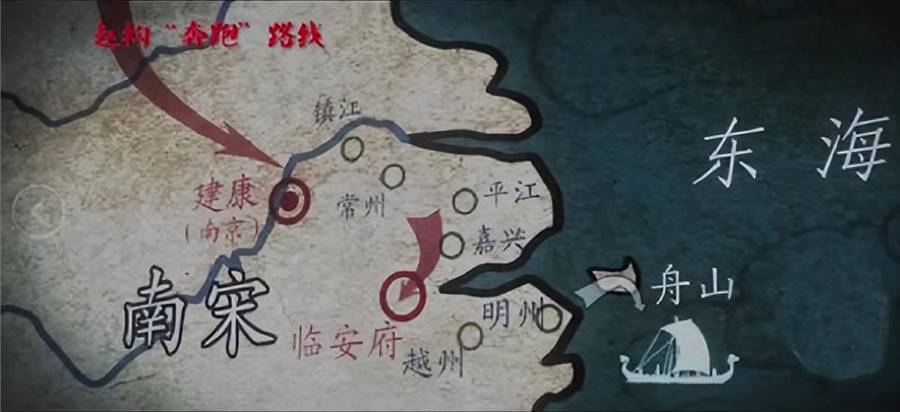 赵构“奔跑”路线
镇江
东海
建康
(南京)
常州
平江
嘉兴
南宋
舟山
明州
临安府
越州